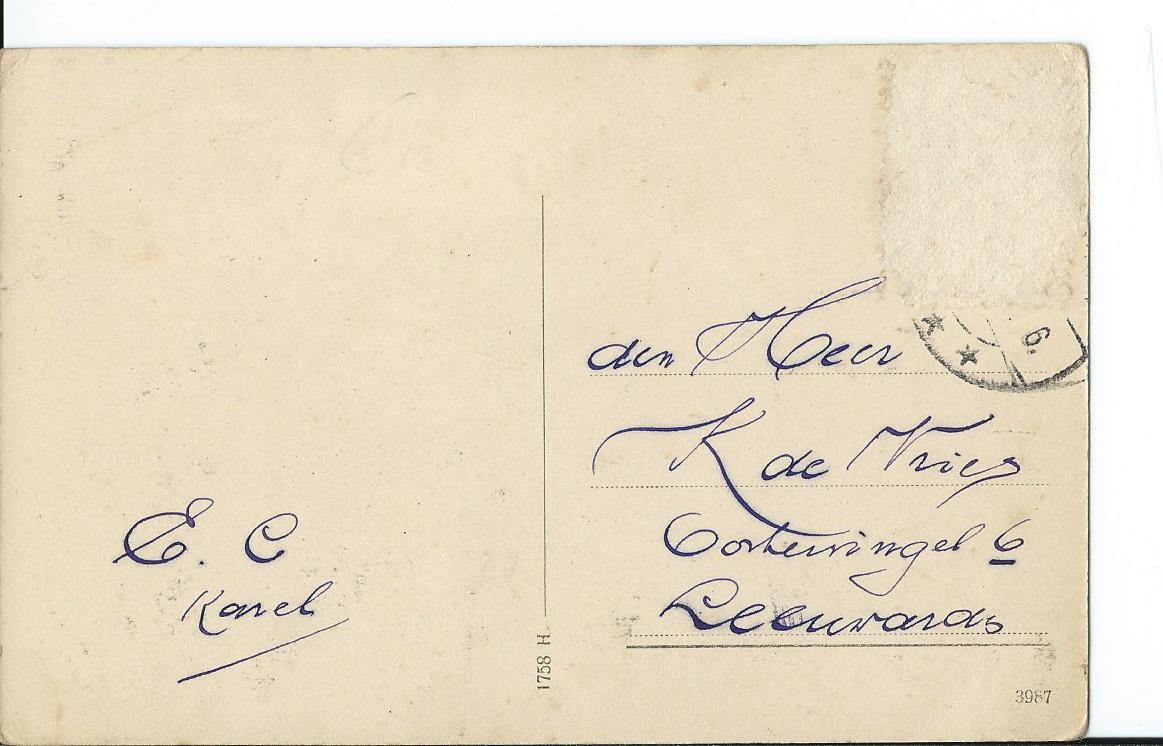 E. C
Karel
den Heer
K de Vries
Oostersingel 6
Leeuwarden
1758 H
3987
6.